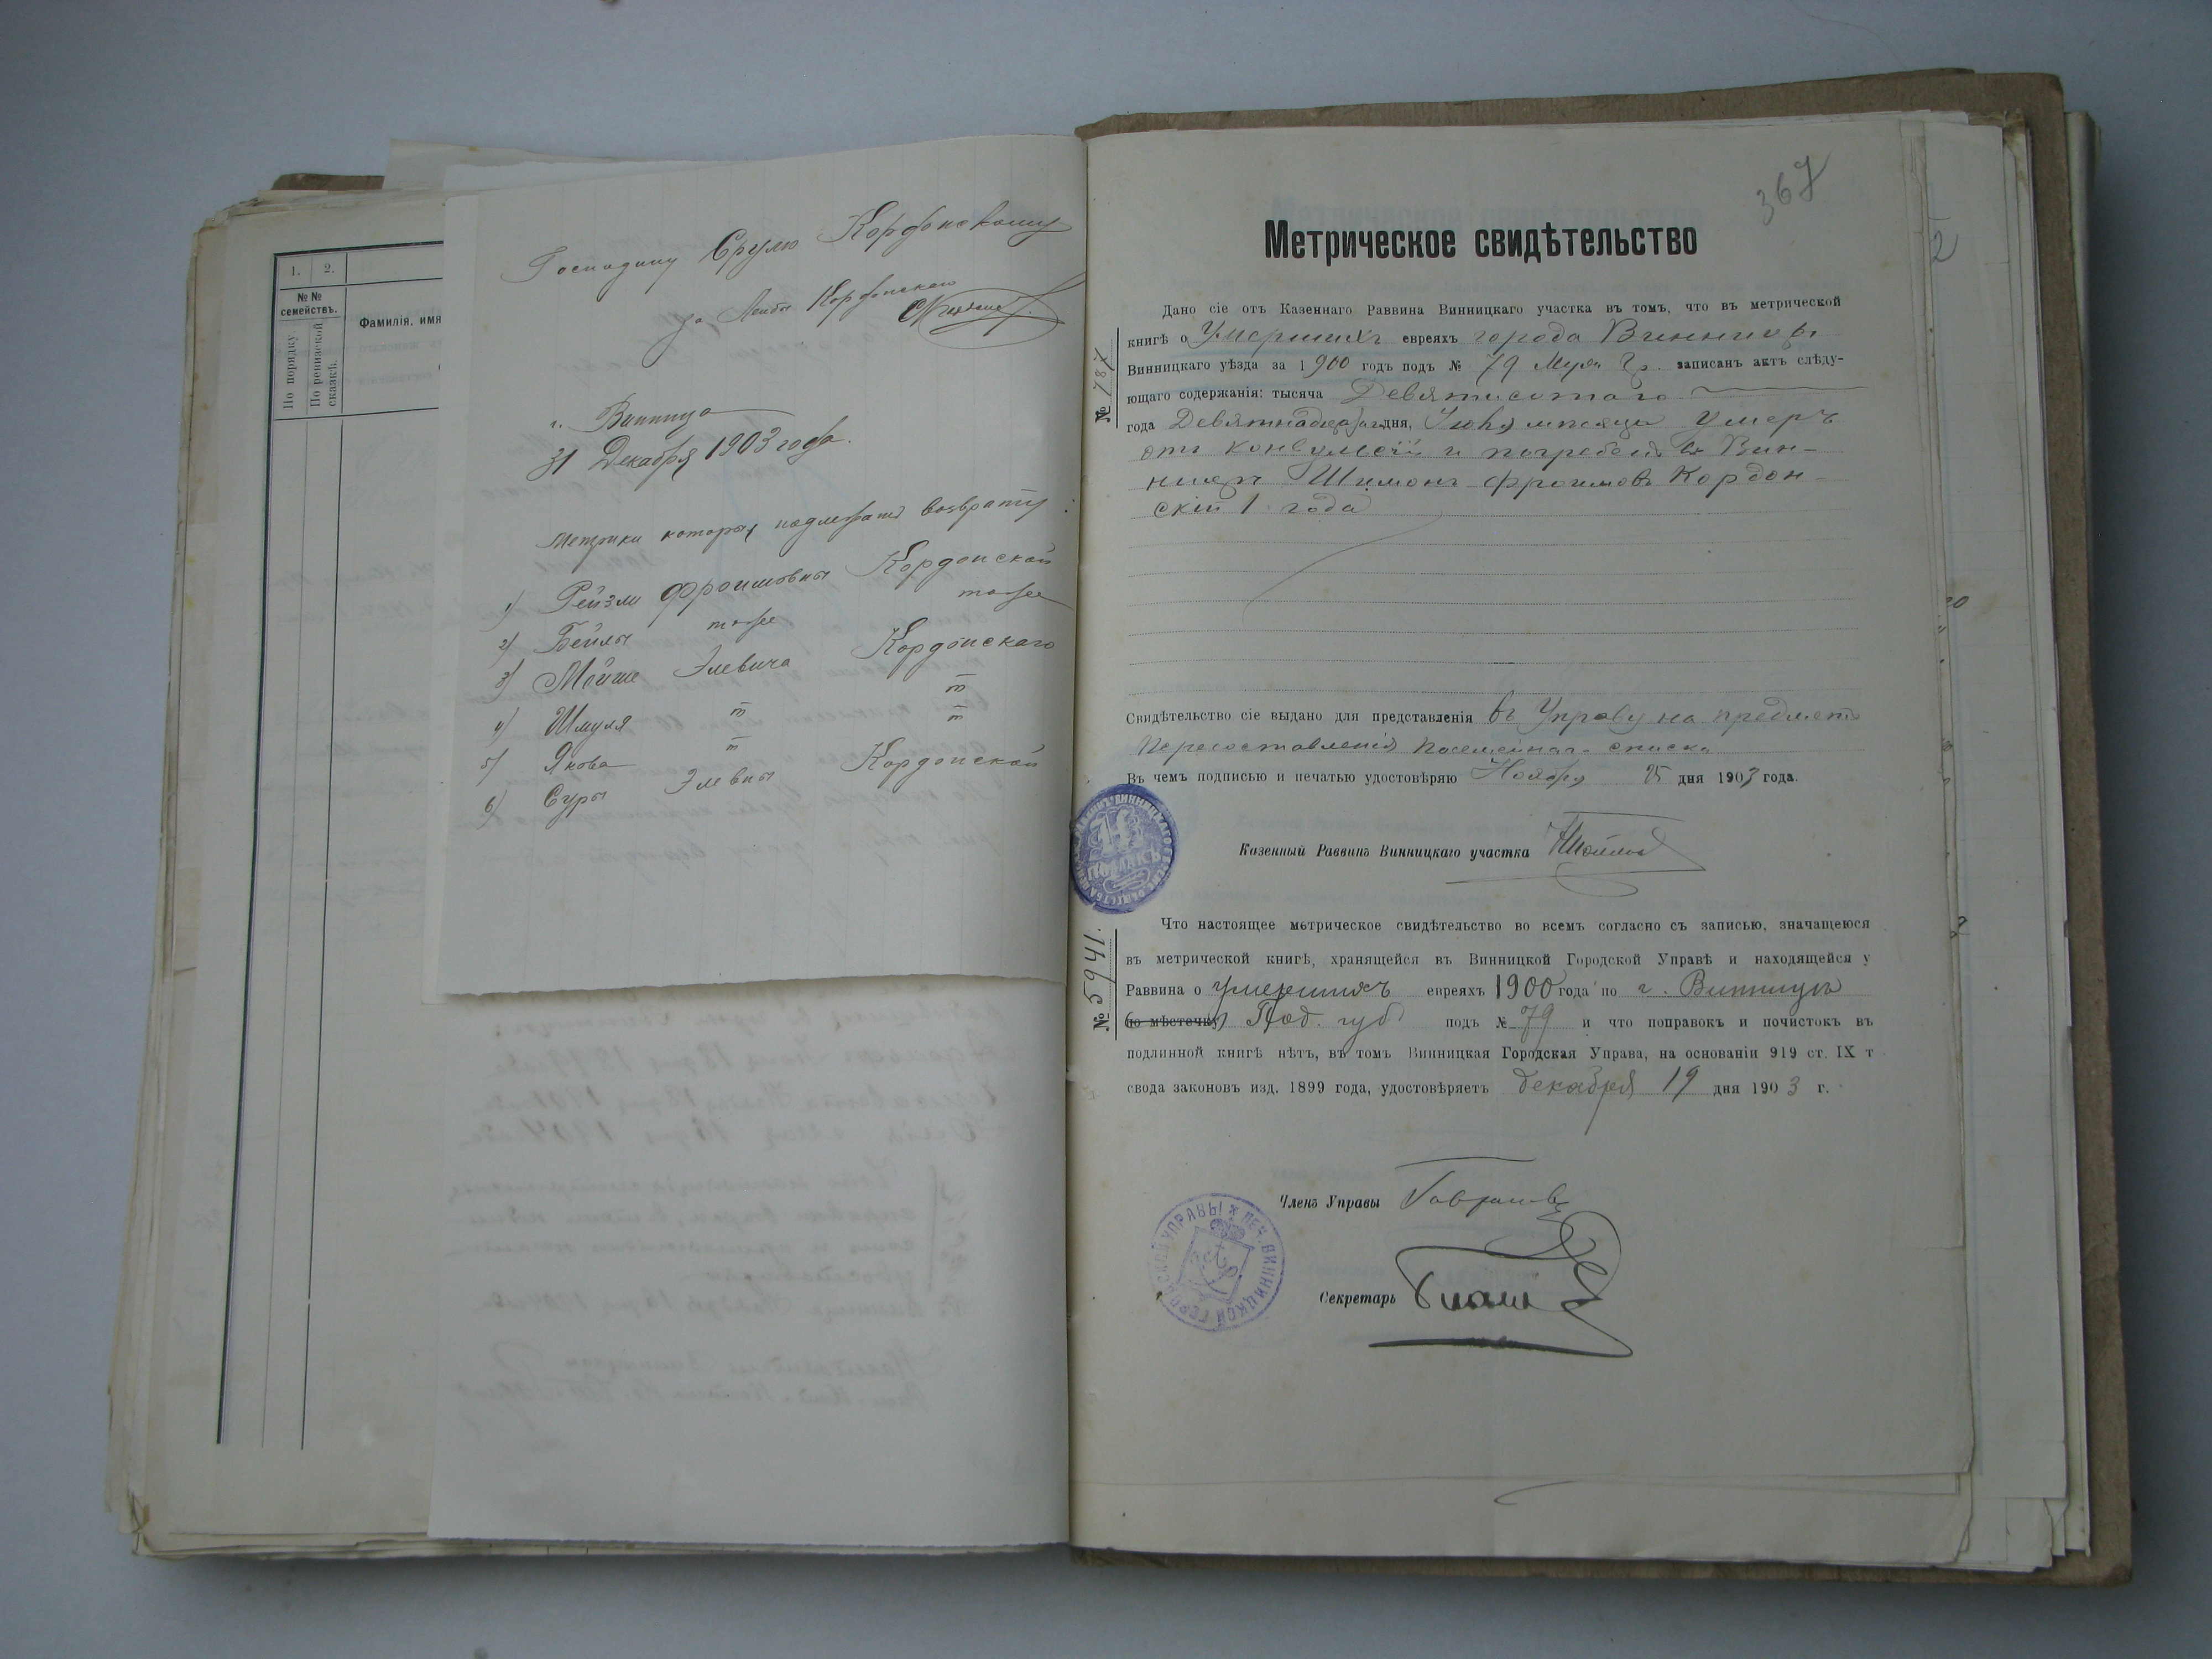 1. 2.
№ №
семействъ.
Фамилія, имя
По порядку
По ревизской
сказкѣ.
Господину Срулю Кордонскому
за Лейбы Кордонскаго
г. Винница
31 Декабря 1903 года.
Метрики которыя подлежатъ возврату:
1) Рейзли Фроимовны Кордонской
2) Бейлы тоже тоже
3) Мойше Элевича Кордонскаго
4) Шмуля " "
5) Якова " "
6) Суры Элевны Кордонской
367
Метрическое свидѣтельство
№ 787
Дано сіе отъ Казеннаго Раввина Винницкаго участка въ томъ, что въ метрической
книгѣ о Умершихъ евреяхъ города Винницы
Винницкаго уѣзда за 1900 годъ подъ № 79 Муж. гр. записанъ актъ слѣду-
ющаго содержанія: тысяча Девятисотаго
года Девятнадцатаго дня, Іюня мѣсяца Умеръ
отъ конвульсій и погребенъ въ Вин-
ницѣ Шимонъ Фроимовъ Кордон-
скій 1 года
Свидѣтельство сіе выдано для представленія въ Управу на предметъ
Пересоставленія Посемейнаго списка
Въ чемъ подписью и печатью удостовѣряю Ноября 25 дня 1903 года.
Казенный Раввинъ Винницкаго участка
№ 5941.
Что настоящее метрическое свидѣтельство во всемъ согласно съ записью, значащеюся
въ метрической книгѣ, хранящейся въ Винницкой Городской Управѣ и находящейся у
Раввина о умершихъ евреяхъ 1900 года по г. Винницѣ
(по мѣстечку) Под. губ. подъ № 79 и что поправокъ и почистокъ въ
подлинной книгѣ нѣтъ, въ томъ Винницкая Городская Управа, на основаніи 919 ст. IX т
свода законовъ изд. 1899 года, удостовѣряетъ декабря 19 дня 1903 г.
Членъ Управы
ПЕЧ. ВИННИЦКОЙ ГОРОДСКОЙ УПРАВЫ
Секретарь